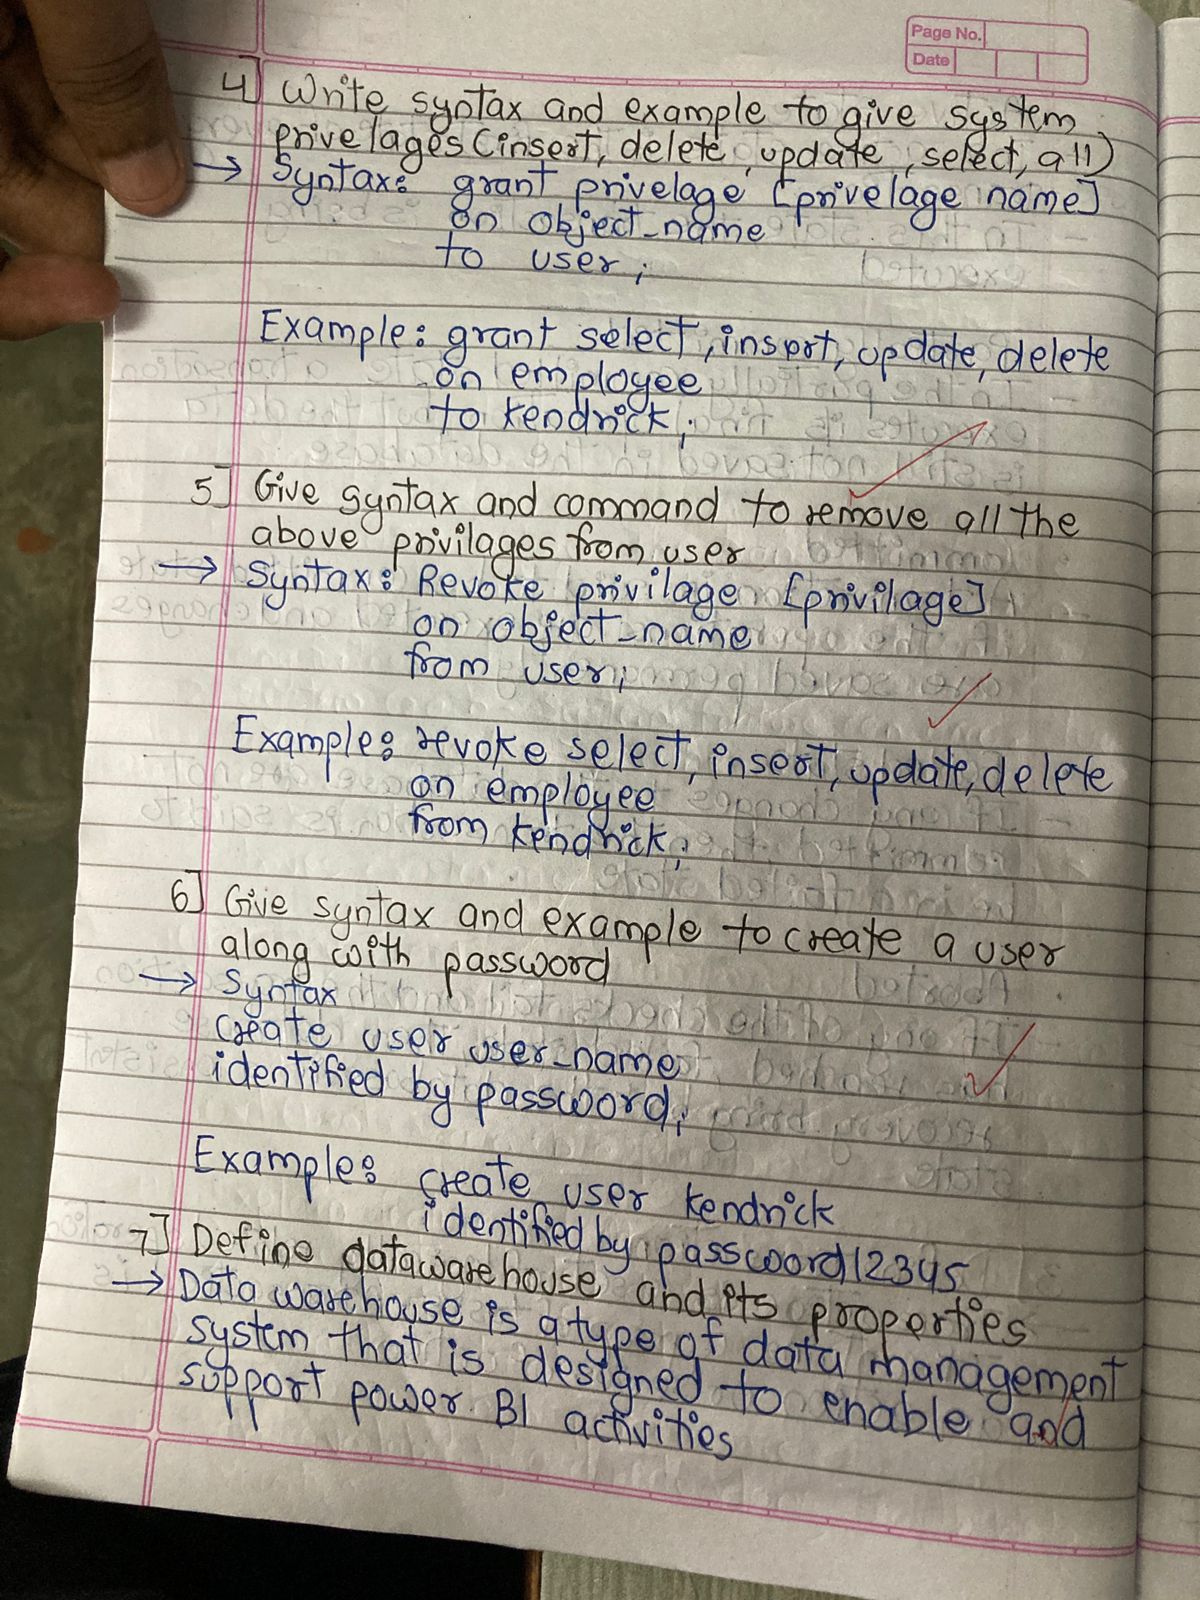 Page No.
Date
4] Write syntax and example to give system
privelages (insert, delete, update, select, all)
→ Syntax: grant privelage [privelage name]
on object_name
to user;
Example: grant select, insert, update, delete
on employee
to kendrick;
5] Give syntax and command to remove all the
above privilages from user
→ Syntax: Revoke privilage [privilage]
on object_name
from user;
Example: revoke select, insert, update, delete
on employee
from kendrick;
6] Give syntax and example to create a user
along with password
→ Syntax
Create user user_name
identified by password;
Example: create user kendrick
identified by password12345
7] Define datawarehouse and its properties
→ Data warehouse is a type of data management
system that is designed to enable and
support power BI activities